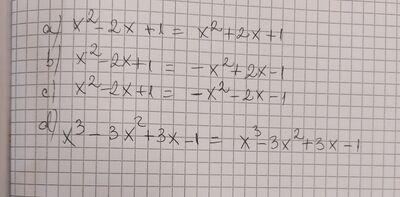 a) x² - 2x + 1 = x² + 2x + 1
b) x² - 2x + 1 = -x² + 2x - 1
c) x² - 2x + 1 = -x² - 2x - 1
d) x³ - 3x² + 3x - 1 = x³ - 3x² + 3x - 1